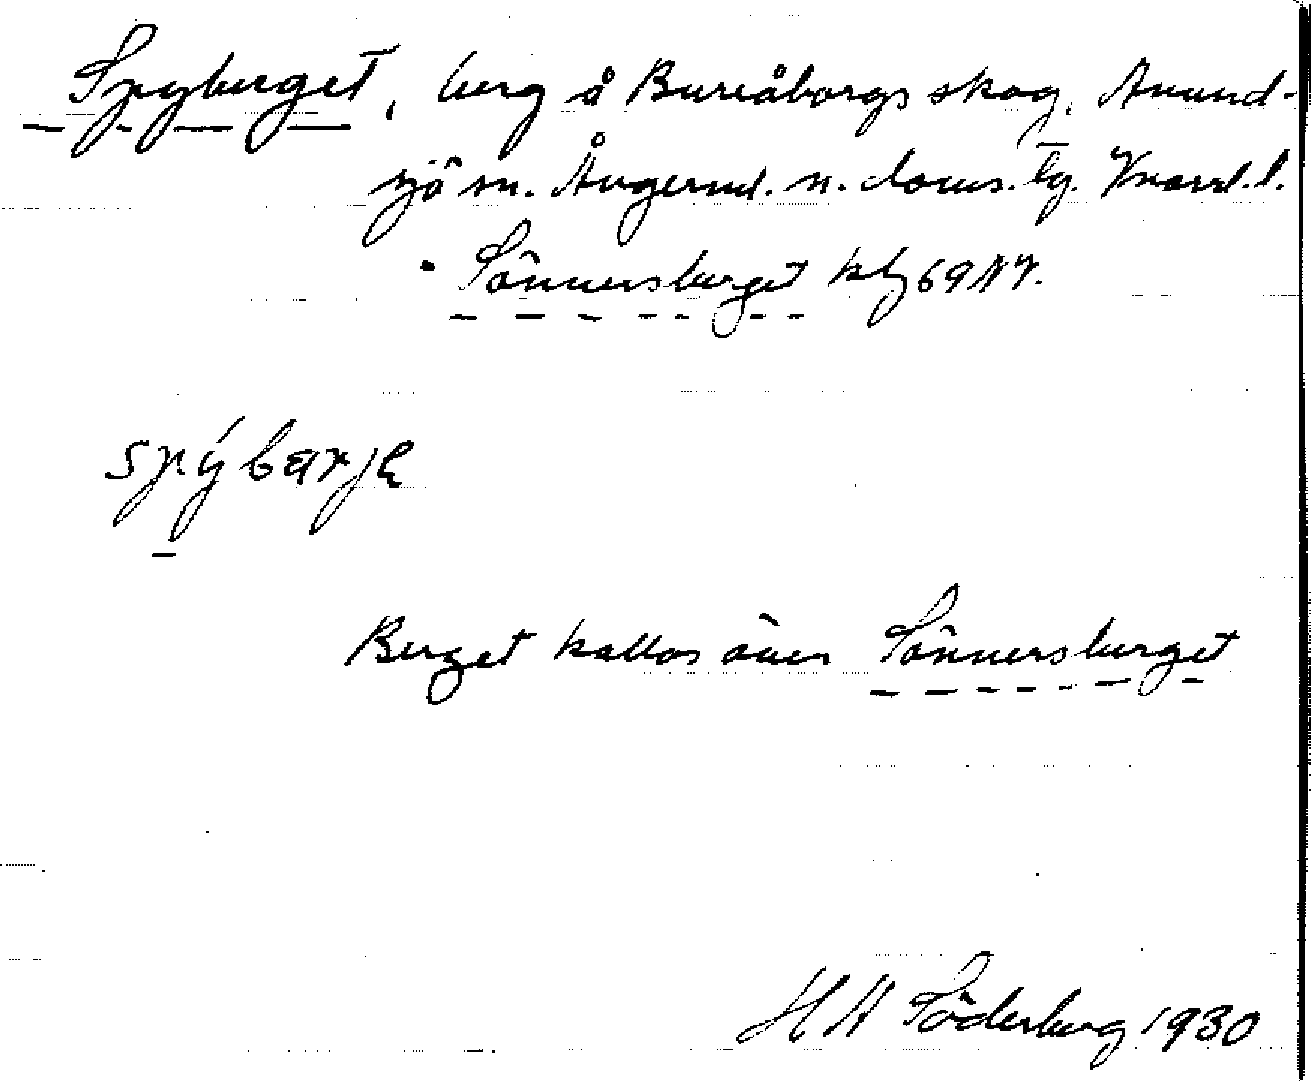 Spyberget, berg å Bureåborgs skog, Anund-
sjö sn. Ångerml. n. doms. tg. Vnorrl. l.
• Sönnersberget kbl 69 NV.
spýbærje
Berget kallas även Sönnersberget
H A Söderberg 1930